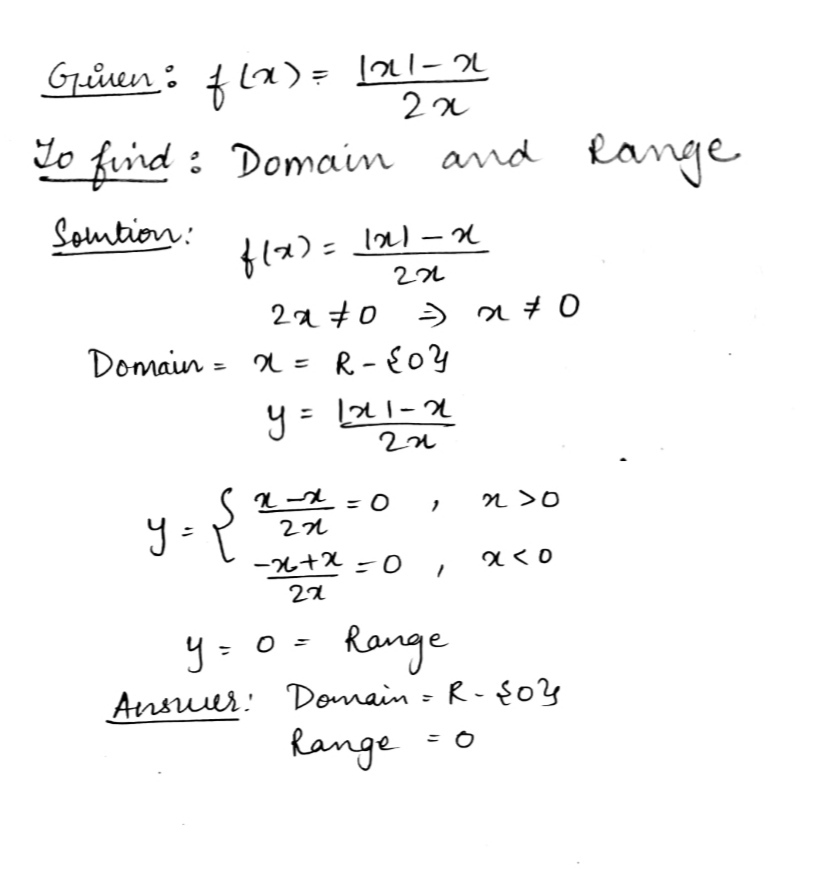 Given: f(x) = |x| - x / 2x
To find: Domain and Range
Solution: f(x) = |x| - x / 2x
2x ≠ 0 ⇒ x ≠ 0
Domain = x = R - {0}
y = |x| - x / 2x
y = { x - x / 2x = 0 , x > 0
-x + x / 2x = 0 , x < 0
y = 0 = Range
Answer: Domain = R - {0}
Range = 0